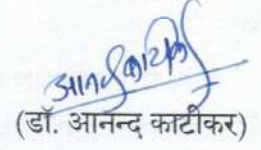 आनन्द काटीकर
(डॉ. आनन्द काटीकर)